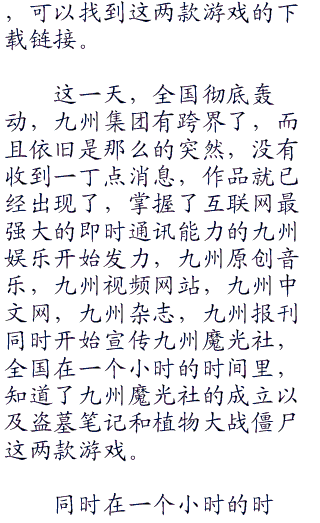 ，可以找到这两款游戏的下
载链接。
这一天，全国彻底轰
动，九州集团有跨界了，而
且依旧是那么的突然，没有
收到一丁点消息，作品就已
经出现了，掌握了互联网最
强大的即时通讯能力的九州
娱乐开始发力，九州原创音
乐，九州视频网站，九州中
文网，九州杂志，九州报刊
同时开始宣传九州魔光社，
全国在一个小时的时间里，
知道了九州魔光社的成立以
及盗墓笔记和植物大战僵尸
这两款游戏。
同时在一个小时的时